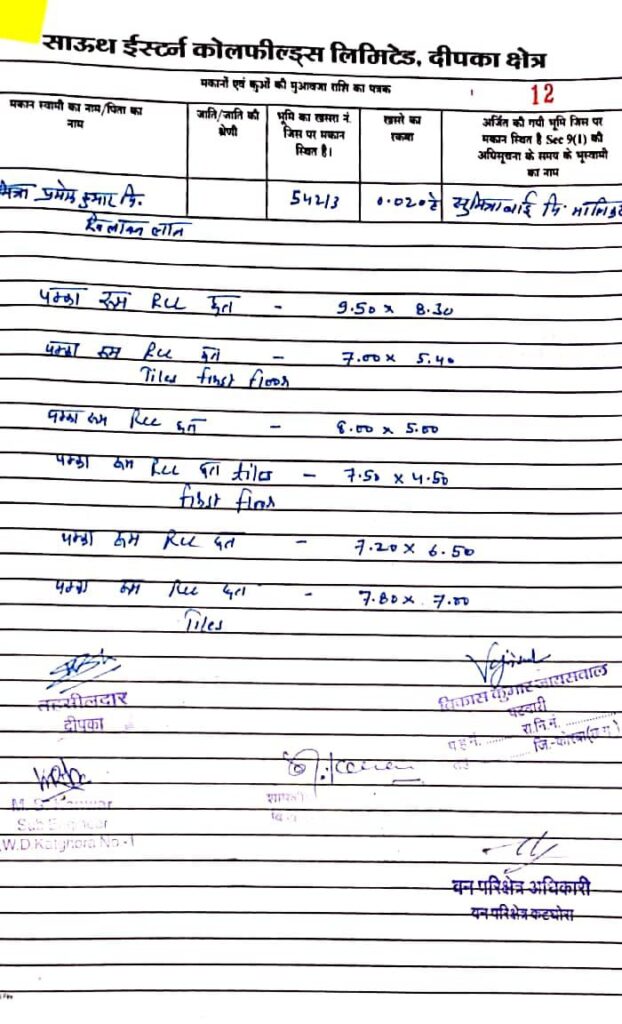 साऊथ ईस्टर्न कोलफील्ड्स लिमिटेड, दीपका क्षेत्र
मकानों एवं कुओं की मुआवजा राशि का पत्रक
12
मकान स्वामी का नाम/पिता का नाम
जाति/जाति की श्रेणी
भूमि का खसरा नं. जिस पर मकान स्थित है।
खसरे का रकबा
अर्जित की गयी भूमि जिस पर मकान स्थित है Sec 9(1) की अधिसूचना के समय के भूस्वामी का नाम
प्रमोद कुमार पि.
542/3
0.020 हे
सुमित्राबाई पि.
लाल
पक्का रूम RCC छत - 9.50 x 8.30
पक्का रूम RCC छत - 7.00 x 5.40
Tiles first floor
पक्का रूम RCC छत - 8.00 x 5.00
पक्का रूम RCC छत tiles - 7.50 x 4.50
first floor
पक्का रूम RCC छत - 7.20 x 6.50
पक्का रूम RCC छत - 7.80 x 7.00
Tiles
तहसीलदार
दीपका
विकास कुमार जायसवाल
पटवारी
प.ह.नं. ............ रा.नि.नं. ............
जि.-कोरबा(छ.ग.)
M. S. Kanwar
Sub Engineer
W.D Katghora No.-1
वन परिक्षेत्र अधिकारी
वन परिक्षेत्र कटघोरा